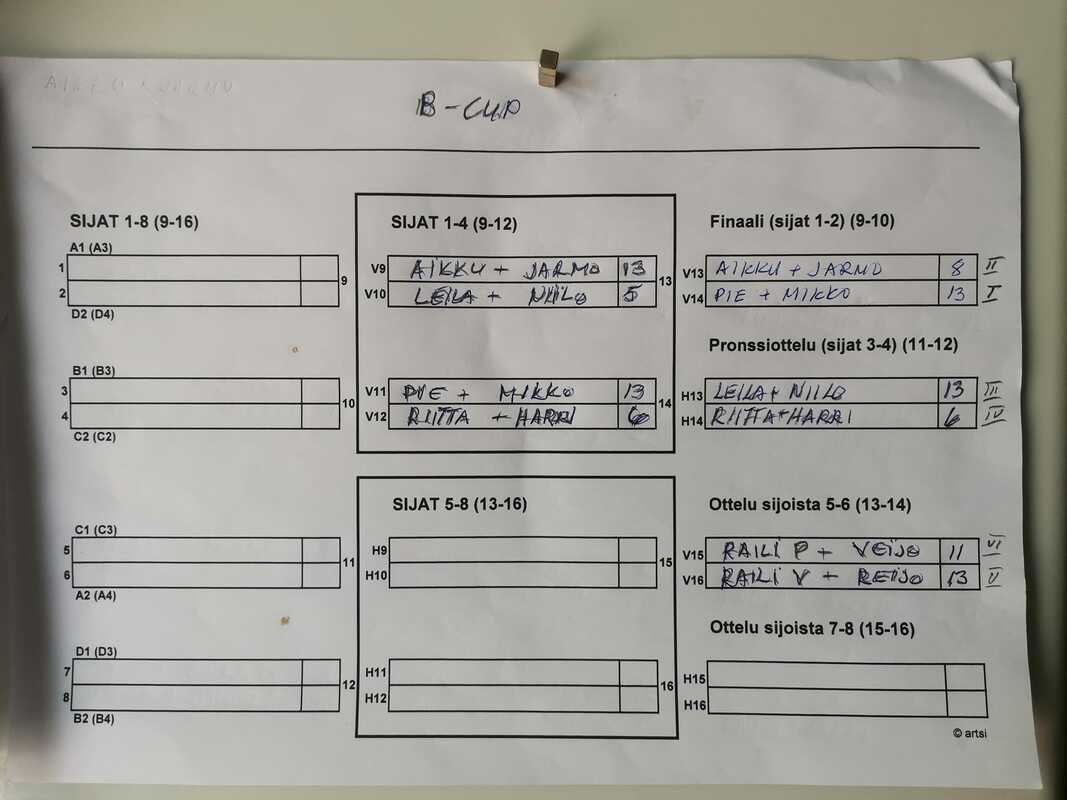 B-CUP
SIJAT 1-8 (9-16)
A1 (A3)
1
2
9
D2 (D4)
B1 (B3)
3
4
10
C2 (C2)
C1 (C3)
5
6
11
A2 (A4)
D1 (D3)
7
8
12
B2 (B4)
SIJAT 1-4 (9-12)
V9 AIKKU + JARMO 13
V10 LEILA + NIILO 5
13
V11 PIE + MIKKO 13
V12 RIITTA + HARRI 6
14
SIJAT 5-8 (13-16)
H9
H10
15
H11
H12
16
Finaali (sijat 1-2) (9-10)
V13 AIKKU + JARMO 8 II
V14 PIE + MIKKO 13 I
Pronssiottelu (sijat 3-4) (11-12)
H13 LEILA + NIILO 13 III
H14 RIITTA + HARRI 6 IV
Ottelu sijoista 5-6 (13-14)
V15 RAILI P + VEIJO 11 VI
V16 RAILI V + REIJO 13 V
Ottelu sijoista 7-8 (15-16)
H15
H16
© artsi